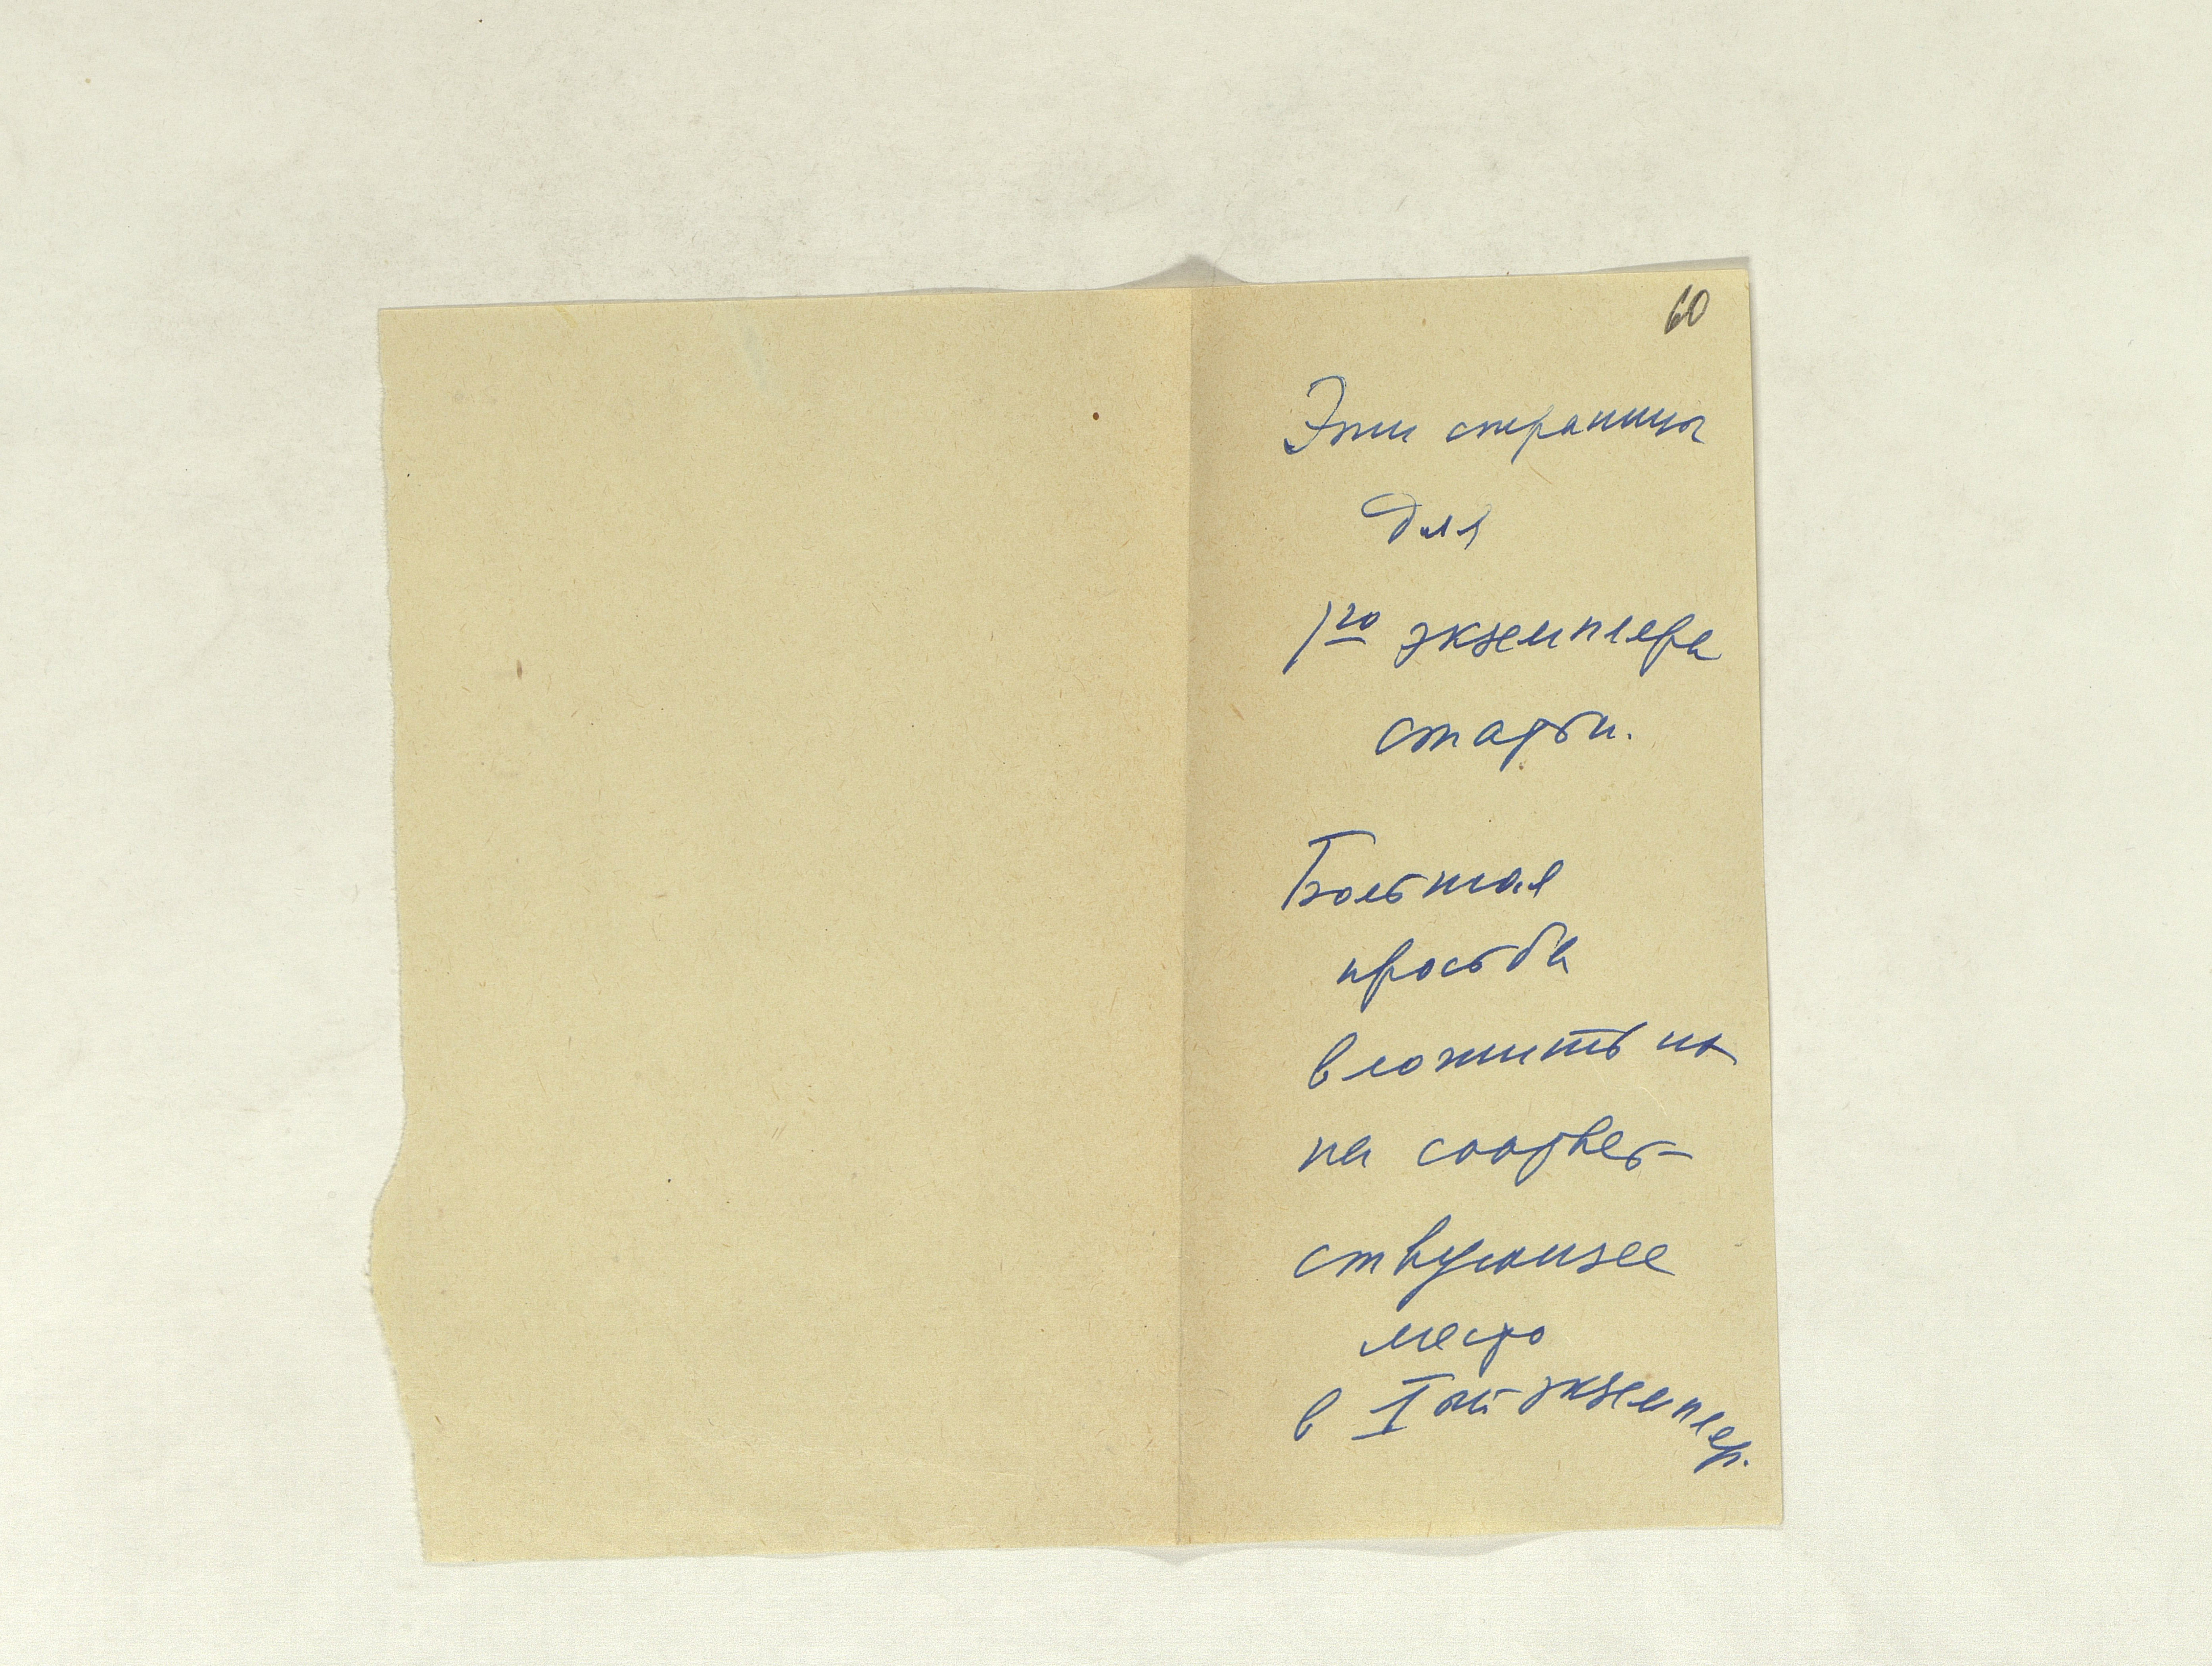 60
Эти страницы
для
1го экземпляра
статьи.
Большая
просьба
вложить их
на соответ-
ствующее
место
в Iый экземпляр.